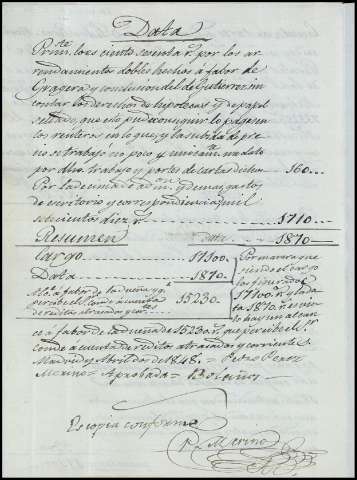 Data
Primte. lo es ciento sesenta rs. por los ar
rendamientos dobles hechos á favor de
Graguera y conclusion del de Gutierrez sin
contar los derechos de hipotecas y de papel
sellado, que este pudo conseguir lo pagasen
los renteros en lo que, y la subida de pre
cio se trabajó no poco y unicamte. ma dato
por dho. trabajo y portes de cartas 160...
Por la decima de admon. y demas gastos
de escritorio y correspondencia, mil
setecientos diez rs. 1710...
Resumen data 1870...
Cargo 17100.
Data 1870.
Alce. á favor de la dueña y q.
percibe el Sr. Conde á cuenta
de reditos atrasados y corr. 15230..
Por manera que
siendo el cargo
los figurados
17100 rs. y la da
ta 1870. de ellos
se hay un alcan
ce á favor de la dueña de 15230 rs. que percibe el Sr.
Conde á cuenta de reditos atrasados y corrientes.
Madrid y Abril dos de 1848. = Pedro Perez
Merino = Aprobada = Bolaños
Es copia conforme
P. Merino